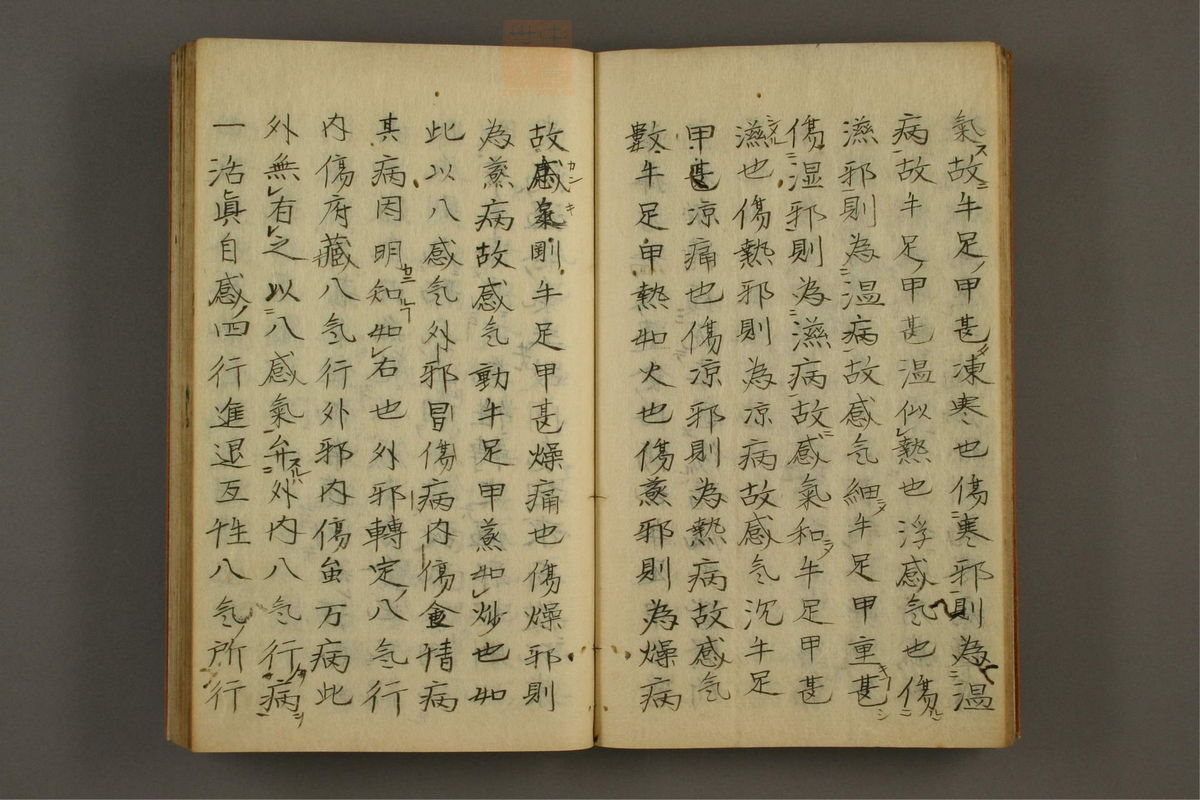 氣故牛足甲甚凍寒也傷寒邪則為温
病故牛足甲甚温似熱也浮感氣也傷
濕邪則為温病故感気細牛足甲重甚
傷湿邪則為濕病故感氣和牛足甲甚
濕也傷熱邪則為凉病故感気沉牛足
甲甚凉痛也傷凉邪則為熱病故感気
數牛足甲熱如火也傷蒸邪則為燥病
故感氣剛牛足甲甚燥痛也傷燥邪則
為蒸病故感気動牛足甲蒸如炒也如
此以八感気外邪冒傷病内傷食精病
其病因明知如右也外邪轉定八気行
内傷府藏八気行外邪内傷虽万病此
外無有之以八感氣弁外内八気行病
一活眞自感四行進退互性八気所行